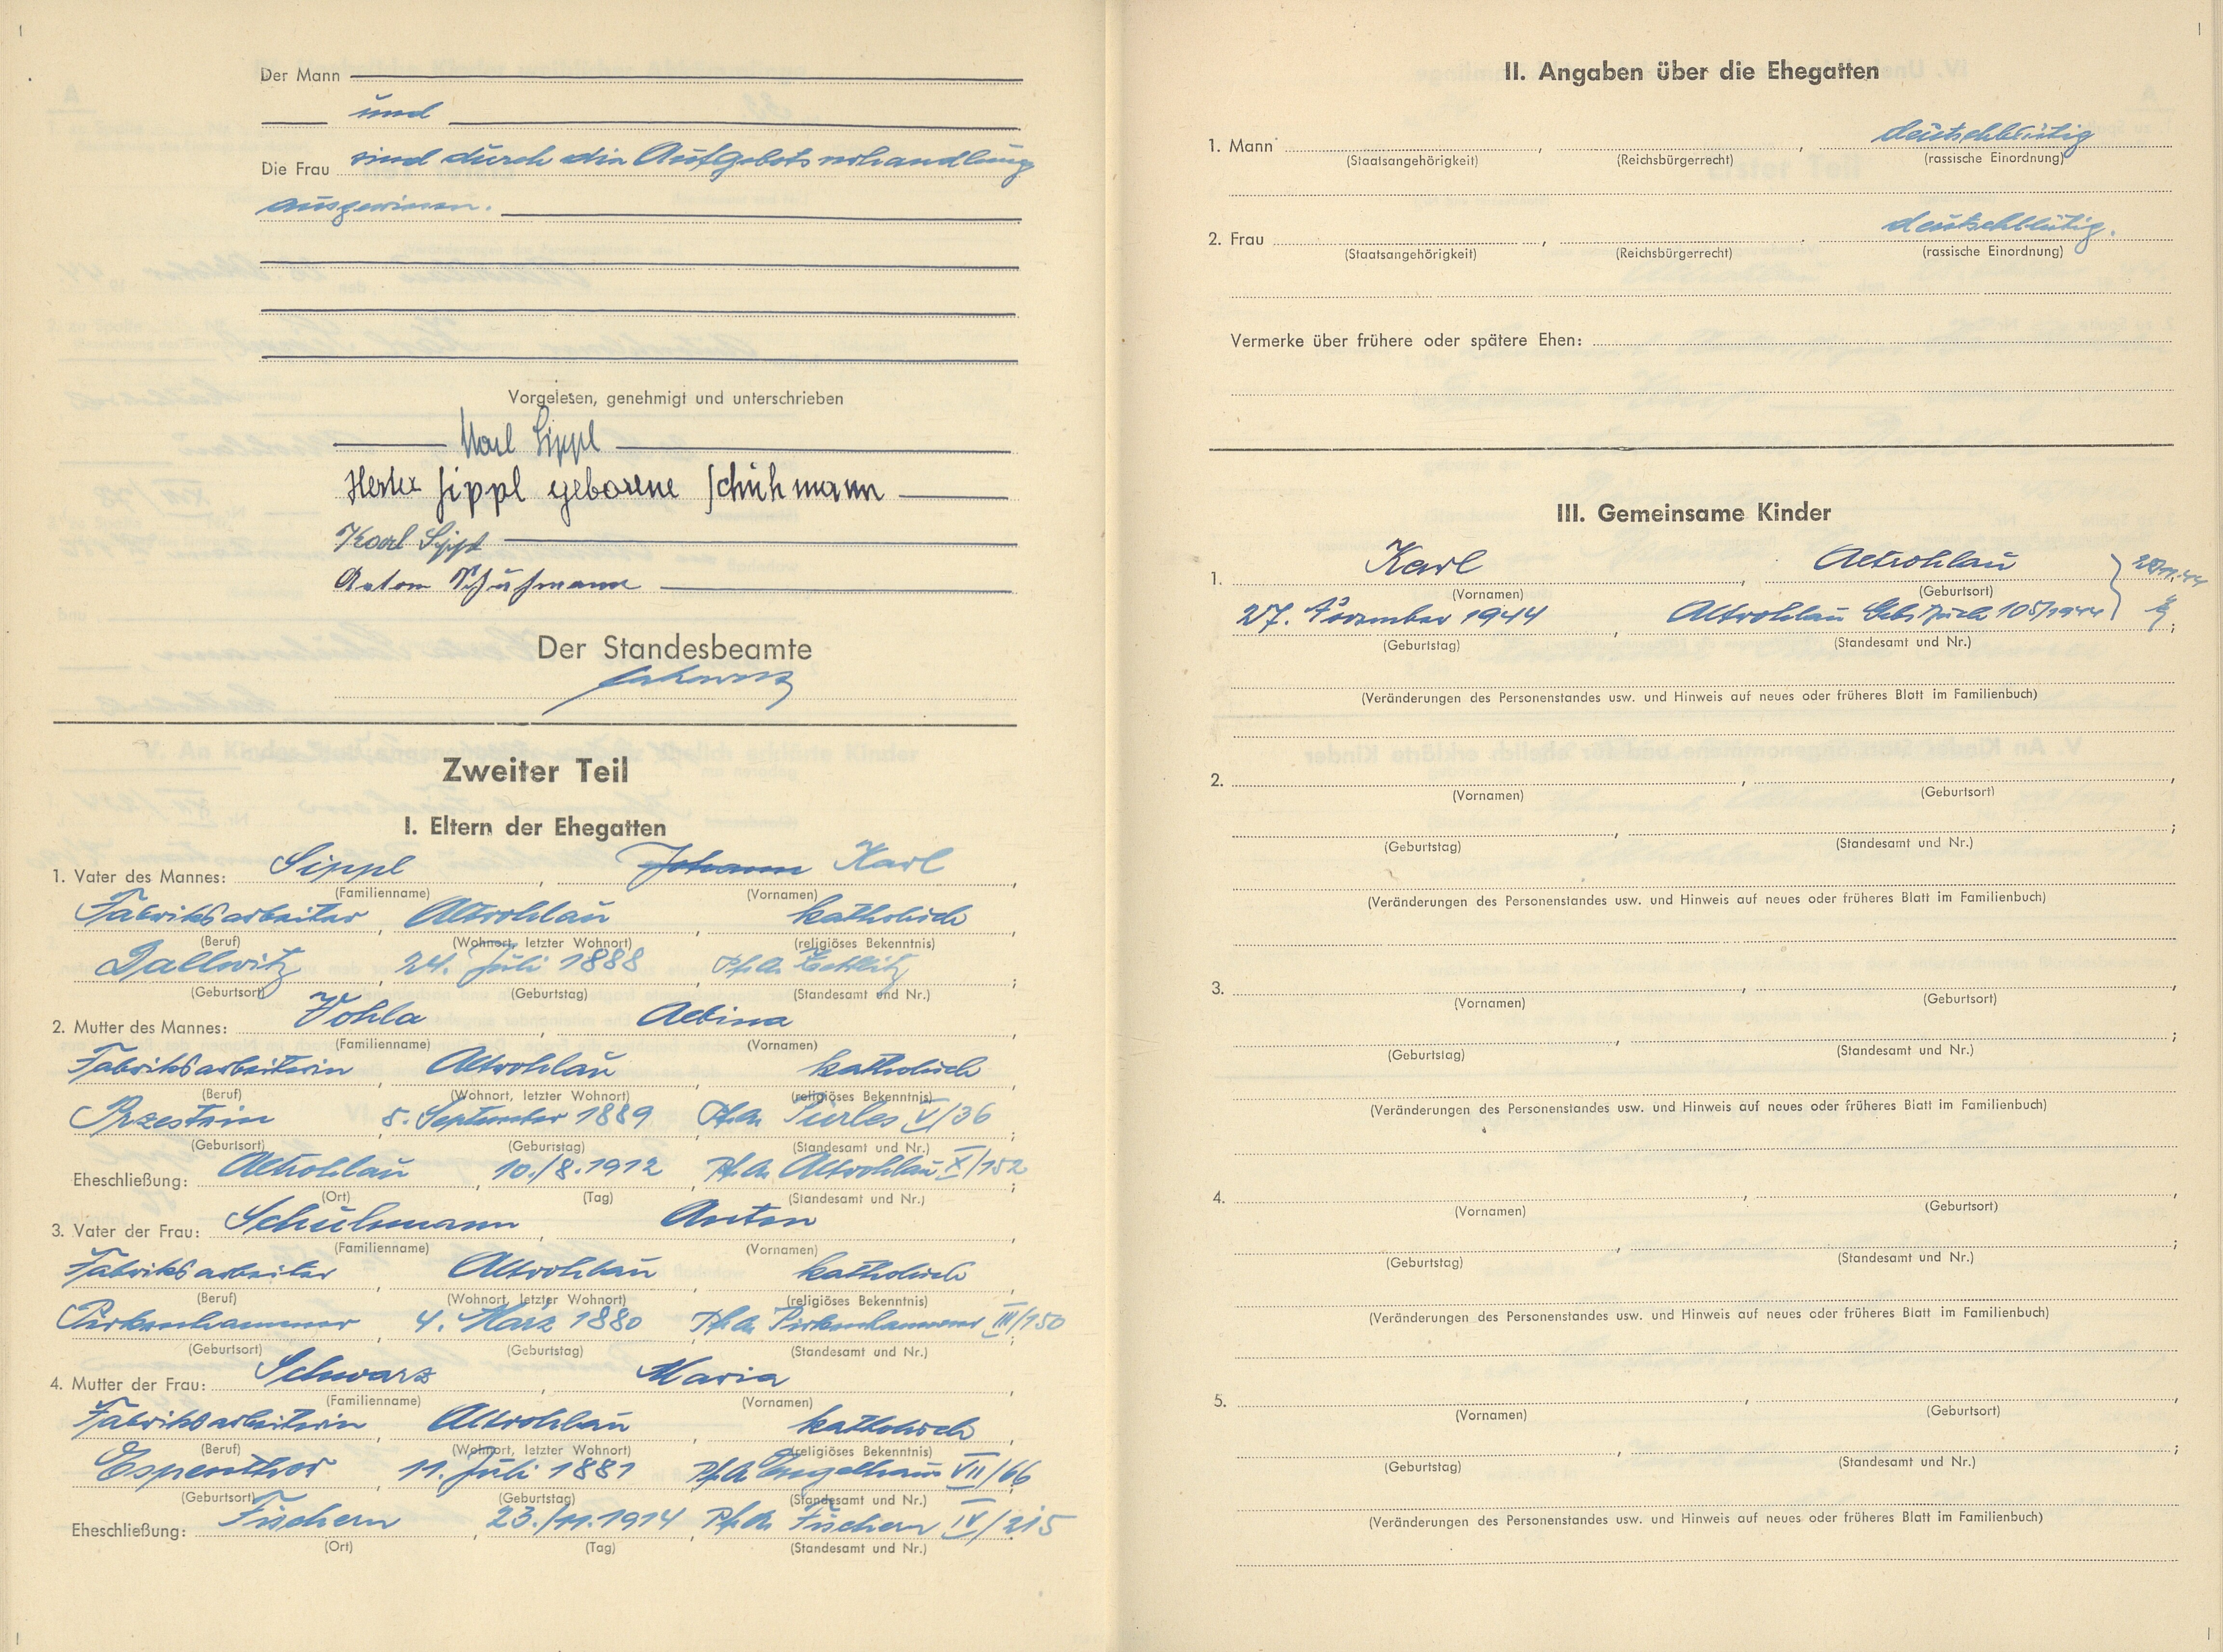 Der Mann
und
Die Frau sind durch die Aufgebotsverhandlung
ausgewiesen.
Vorgelesen, genehmigt und unterschrieben
Karl Sippl
Herta Sippl geborene Schuhmann
Karl Sippl
Anton Schuhmann
Der Standesbeamte
Zweiter Teil
I. Eltern der Ehegatten
1. Vater des Mannes: Sippl, Johann Karl,
(Familienname) (Vornamen)
Fabriksarbeiter, Altrohlau, katholisch,
(Beruf) (Wohnort, letzter Wohnort) (religiöses Bekenntnis)
Dallwitz, 24. Juli 1888, Pf.A. Zettlitz;
(Geburtsort) (Geburtstag) (Standesamt und Nr.)
2. Mutter des Mannes: Wohla, Albina,
(Familienname) (Vornamen)
Fabriksarbeiterin, Altrohlau, katholisch,
(Beruf) (Wohnort, letzter Wohnort) (religiöses Bekenntnis)
Przestein, 5. September 1889, Pf.A. Puerles V/36;
(Geburtsort) (Geburtstag) (Standesamt und Nr.)
Eheschließung: Altrohlau, 10./8.1912, Pf.A. Altrohlau X/152;
(Ort) (Tag) (Standesamt und Nr.)
3. Vater der Frau: Schuhmann, Anton,
(Familienname) (Vornamen)
Fabriksarbeiter, Altrohlau, katholisch,
(Beruf) (Wohnort, letzter Wohnort) (religiöses Bekenntnis)
Pirkenhammer, 4. März 1880, Pf.A. Pirkenhammer III/150;
(Geburtsort) (Geburtstag) (Standesamt und Nr.)
4. Mutter der Frau: Schwarz, Maria,
(Familienname) (Vornamen)
Fabriksarbeiterin, Altrohlau, katholisch,
(Beruf) (Wohnort, letzter Wohnort) (religiöses Bekenntnis)
Espenthor, 11. Juli 1881, Pf.A. Engelhaus VII/66;
(Geburtsort) (Geburtstag) (Standesamt und Nr.)
Eheschließung: Fischern, 23./11.1914, Pf.A. Fischern IV/215
(Ort) (Tag) (Standesamt und Nr.)
II. Angaben über die Ehegatten
1. Mann , , deutschblütig
(Staatsangehörigkeit) (Reichsbürgerrecht) (rassische Einordnung)
2. Frau , . deutschblütig.
(Staatsangehörigkeit) (Reichsbürgerrecht) (rassische Einordnung)
Vermerke über frühere oder spätere Ehen:
III. Gemeinsame Kinder
1. Karl, Altrohlau
(Vornamen) (Geburtsort)
27. November 1944, Altrohlau Geb. Buch 105/1944;
(Geburtstag) (Standesamt und Nr.)
(Veränderungen des Personenstandes usw. und Hinweis auf neues oder früheres Blatt im Familienbuch)
2. , ,
(Vornamen) (Geburtsort)
, ;
(Geburtstag) (Standesamt und Nr.)
(Veränderungen des Personenstandes usw. und Hinweis auf neues oder früheres Blatt im Familienbuch)
3. , ,
(Vornamen) (Geburtsort)
, ;
(Geburtstag) (Standesamt und Nr.)
(Veränderungen des Personenstandes usw. und Hinweis auf neues oder früheres Blatt im Familienbuch)
4. , ,
(Vornamen) (Geburtsort)
, ;
(Geburtstag) (Standesamt und Nr.)
(Veränderungen des Personenstandes usw. und Hinweis auf neues oder früheres Blatt im Familienbuch)
5. , ,
(Vornamen) (Geburtsort)
, ;
(Geburtstag) (Standesamt und Nr.)
(Veränderungen des Personenstandes usw. und Hinweis auf neues oder früheres Blatt im Familienbuch)